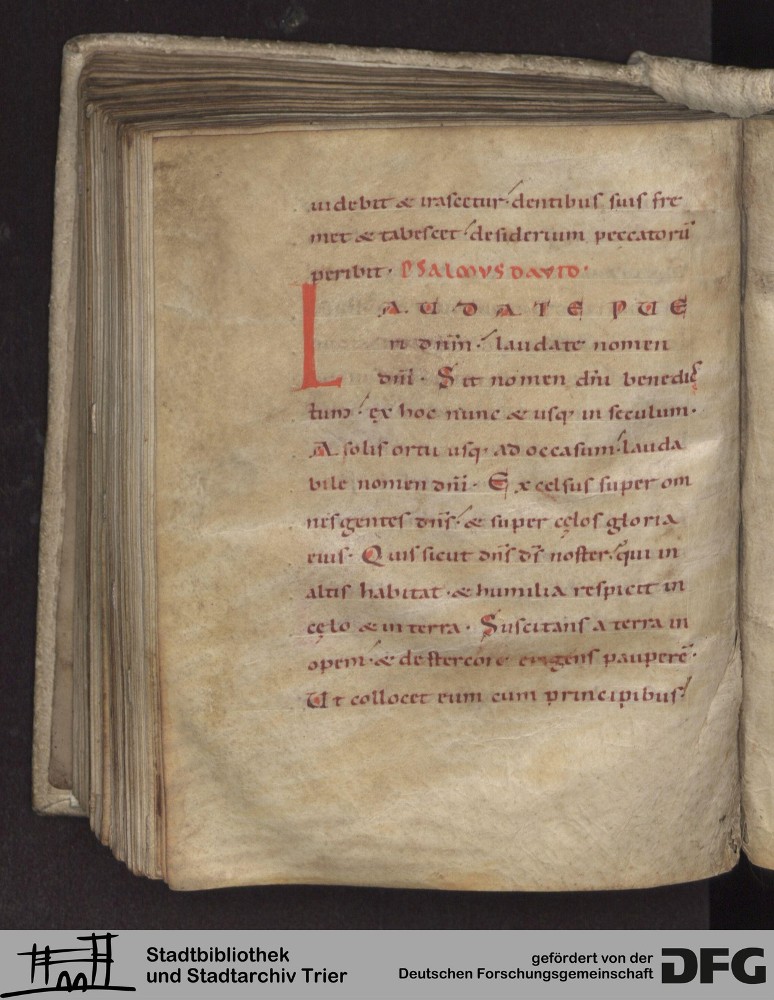 uidebit & irascetur. dentibus suis fre
met & tabescet. desiderium peccatorū
peribit. PSALMVS DAVID.
LAUDATE PUE
ri dn̄m. laudate nomen
dn̄i. Sit nomen dn̄i benedic
tum. ex hoc nunc & usq; in seculum.
A solis ortu usq; ad occasum. lauda
bile nomen dn̄i. Excelsus super om
nes gentes dn̄s. & super cęlos gloria
eius. Quis sicut dn̄s ds̄ noster. qui in
altis habitat. & humilia respicit in
cęlo & in terra. Suscitans a terra in
opem. & de stercore erigens pauperē.
Ut collocet eum cum principibus.
Stadtbibliothek
und Stadtarchiv Trier
gefördert von der
Deutschen Forschungsgemeinschaft
DFG